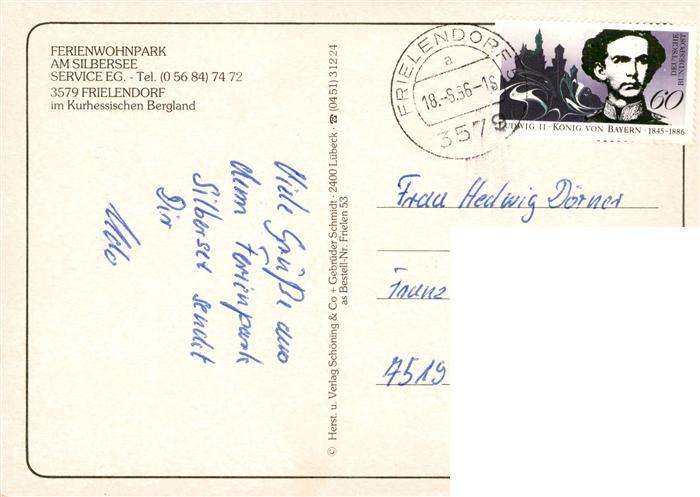 FERIENWOHNPARK
AM SILBERSEE
SERVICE EG. - Tel. (0 56 84) 74 72
3579 FRIELENDORF
im Kurhessischen Bergland
Viele Grüße aus
dem Ferienpark
Silbersee sendet
Dir
Udo
© Herst. u. Verlag Schöning & Co + Gebrüder Schmidt · 2400 Lübeck · ☎ (04 51) 3 12 24
as Bestell-Nr. Frielen 53
FRIELENDORF
a
3579
DEUTSCHE
BUNDESPOST
60
LUDWIG II · KÖNIG VON BAYERN · 1845-1886
Frau Hedwig Dörner
Franz
7519